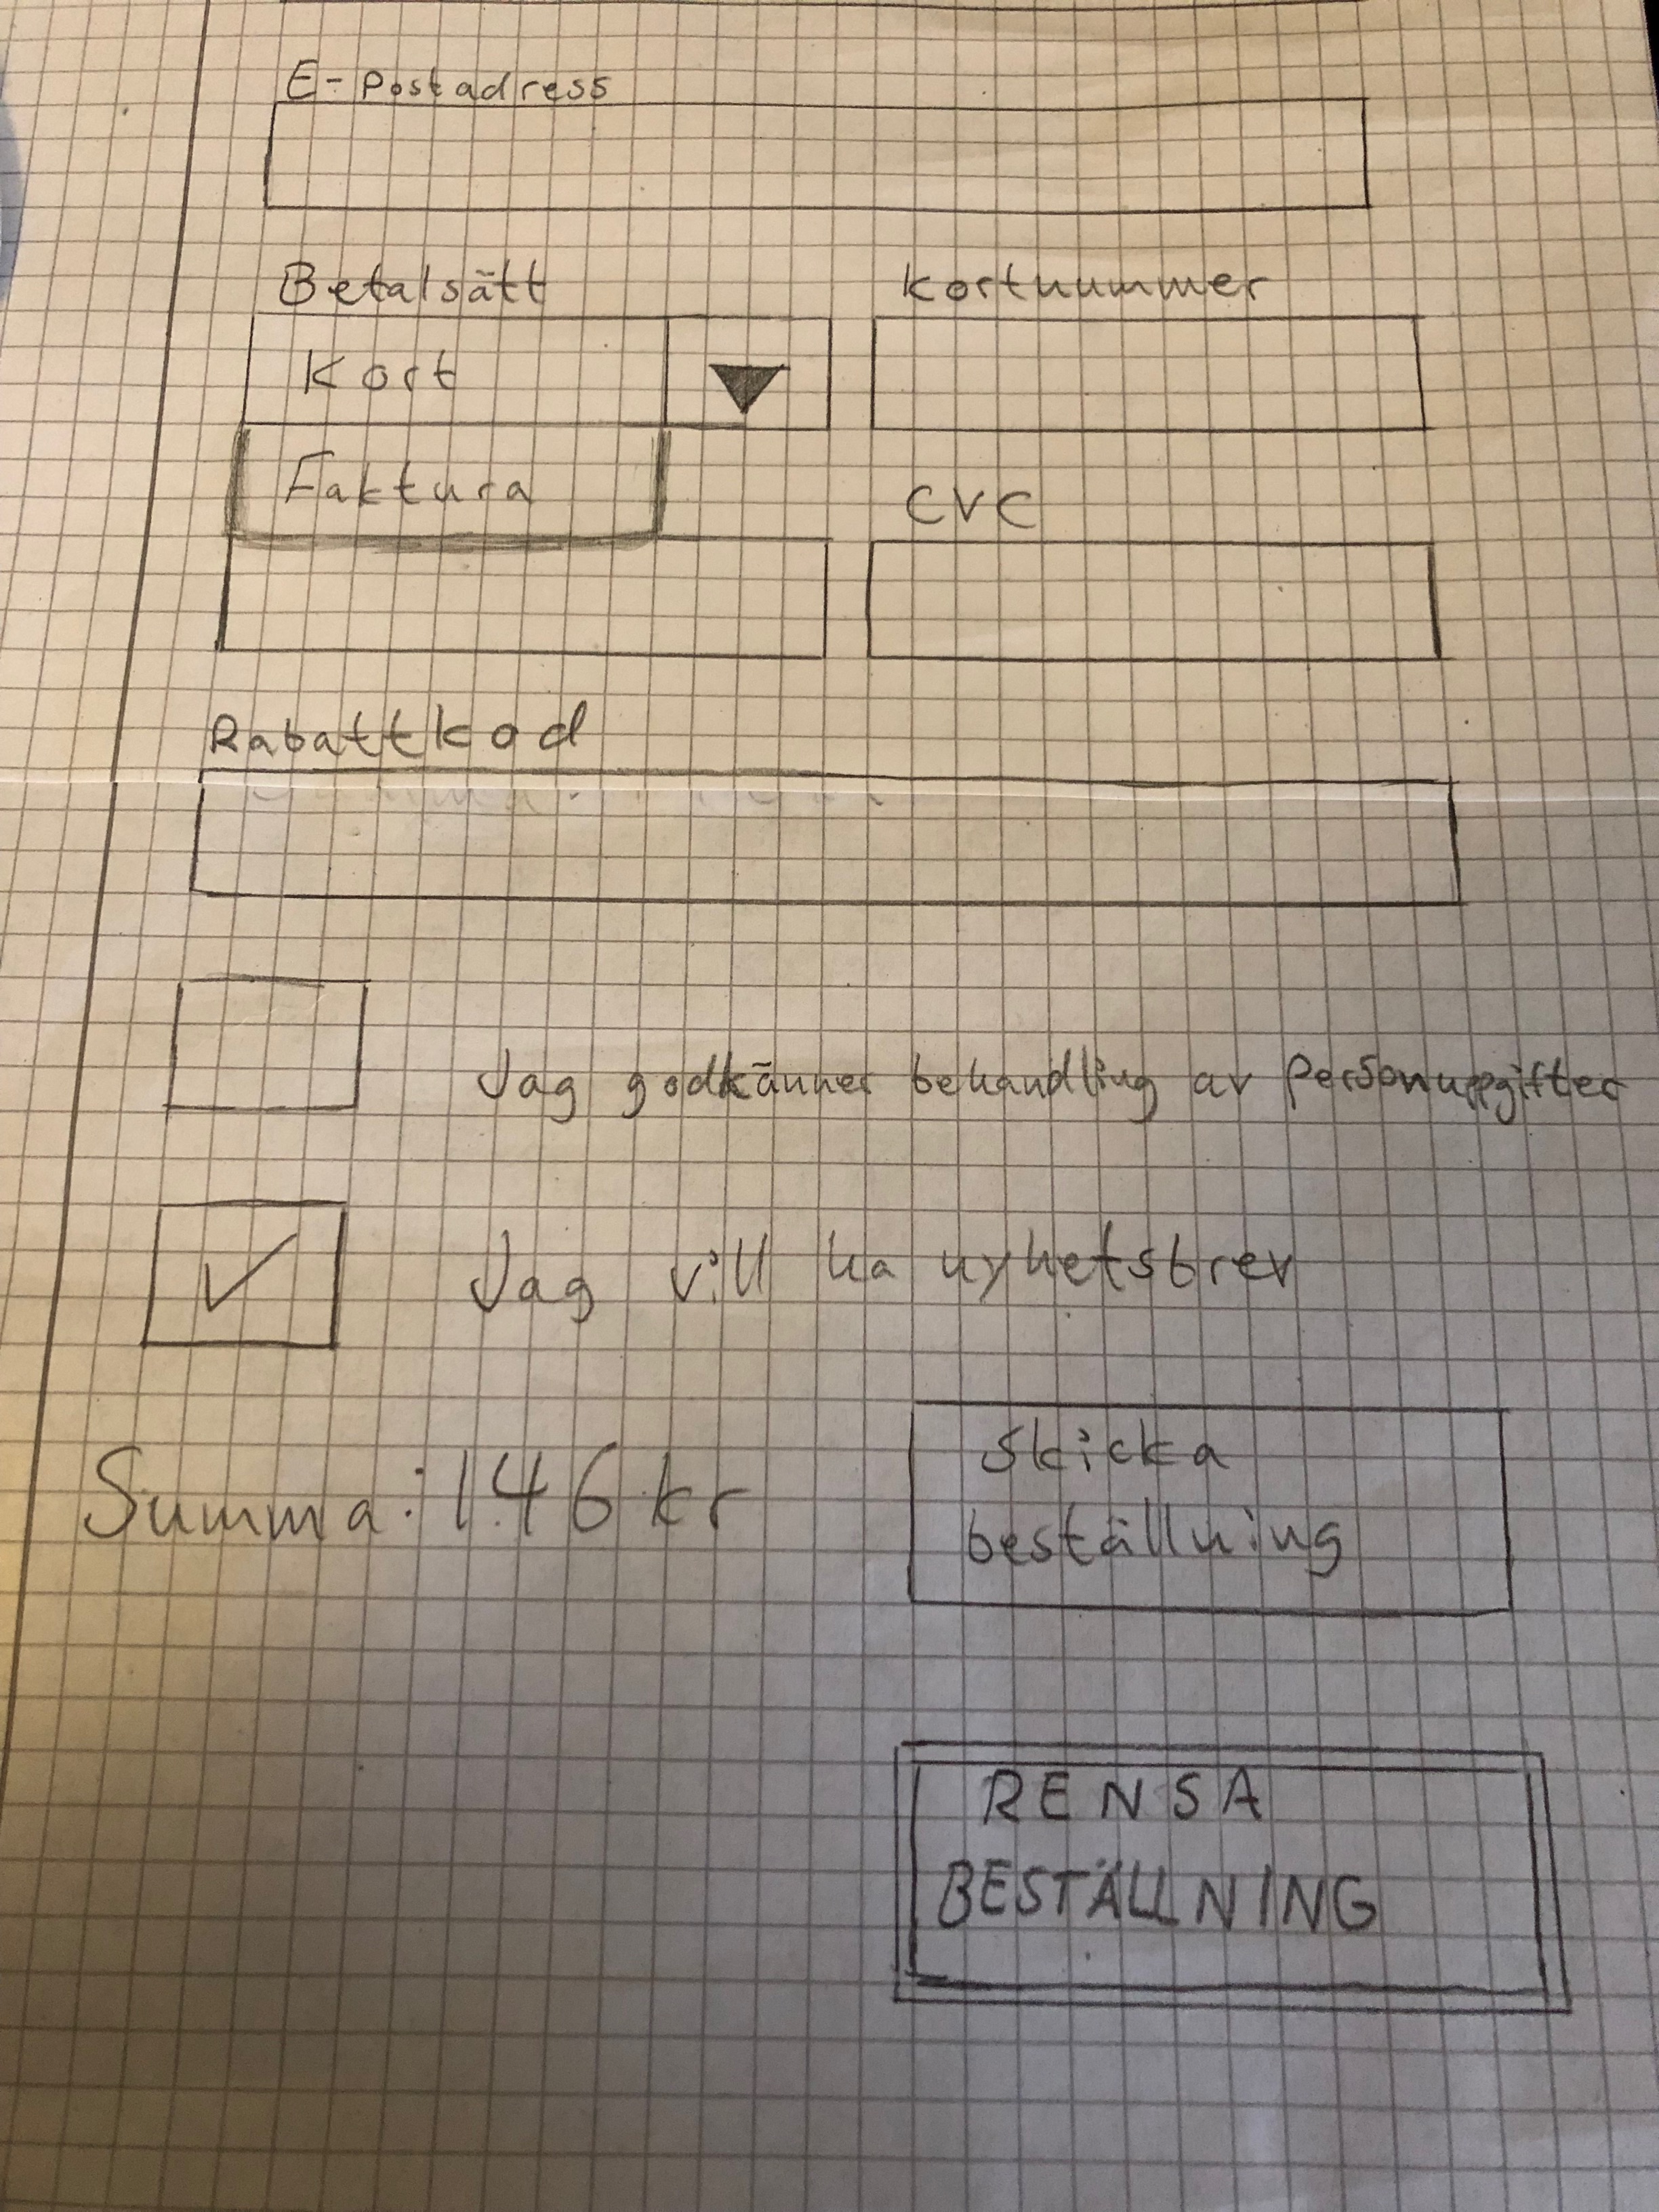 E-Postadress
Betalsätt
Kortnummer
Kort
Faktura
CVC
Rabattkod
Jag godkänner behandling av Personuppgifter
Jag vill ha nyhetsbrev
Summa: 146 kr
Skicka
beställning
RENSA
BESTÄLLNING